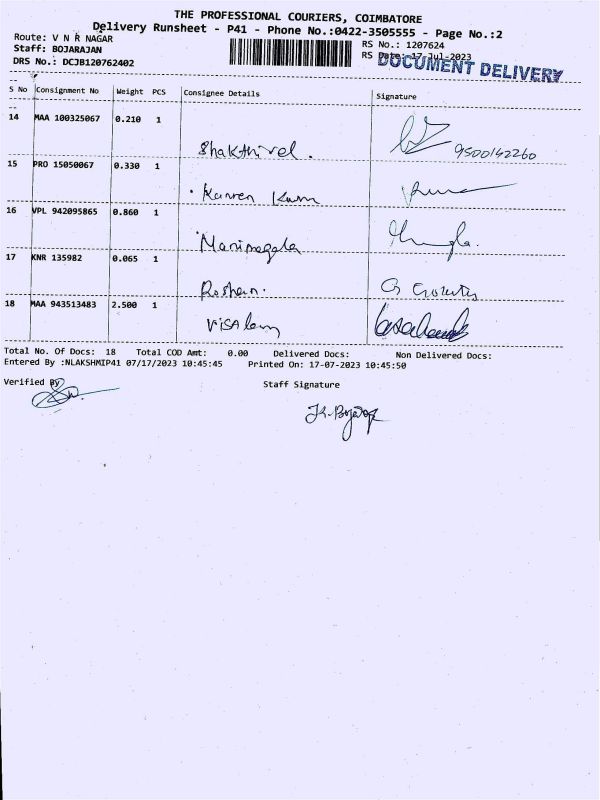 THE PROFESSIONAL COURIERS, COIMBATORE
Delivery Runsheet - P41 - Phone No.:0422-3505555 - Page No.:2
Route: V N R NAGAR
RS No.: 1207624
Staff: BOJARAJAN
RS Date: 17-Jul-2023
DOCUMENT DELIVERY
DRS No.: DCJB120762402
S No Consignment No Weight PCS Consignee Details Signature
14 MAA 100325067 0.210 1
Shakthivel. 9500142260
15 PRO 15050067 0.330 1
16 VPL 942095865 0.860 1
Manimegala
17 KNR 135982 0.065 1
Roshan.
18 MAA 943513483 2.500 1
Total No. Of Docs: 18 Total COD Amt: 0.00 Delivered Docs: Non Delivered Docs:
Entered By :NLAKSHMIP41 07/17/2023 10:45:45 Printed On: 17-07-2023 10:45:50
Verified By Staff Signature